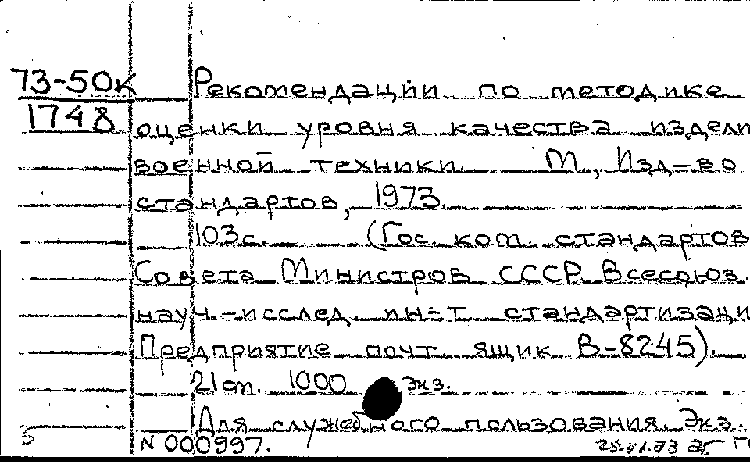 73-50к Рекомендации по методике
1748 оценки уровня качества издели
военной техники М., Изд-во
стандартов, 1973.
103с. (Гос. ком. стандартов
Совета Министров СССР. Всесоюз.
науч.-исслед. ин-т стандартизаци
Предприятие почт. ящик В-8245).
21 см. 1000 экз.
Для служебного пользования. Экз.
N 000997.